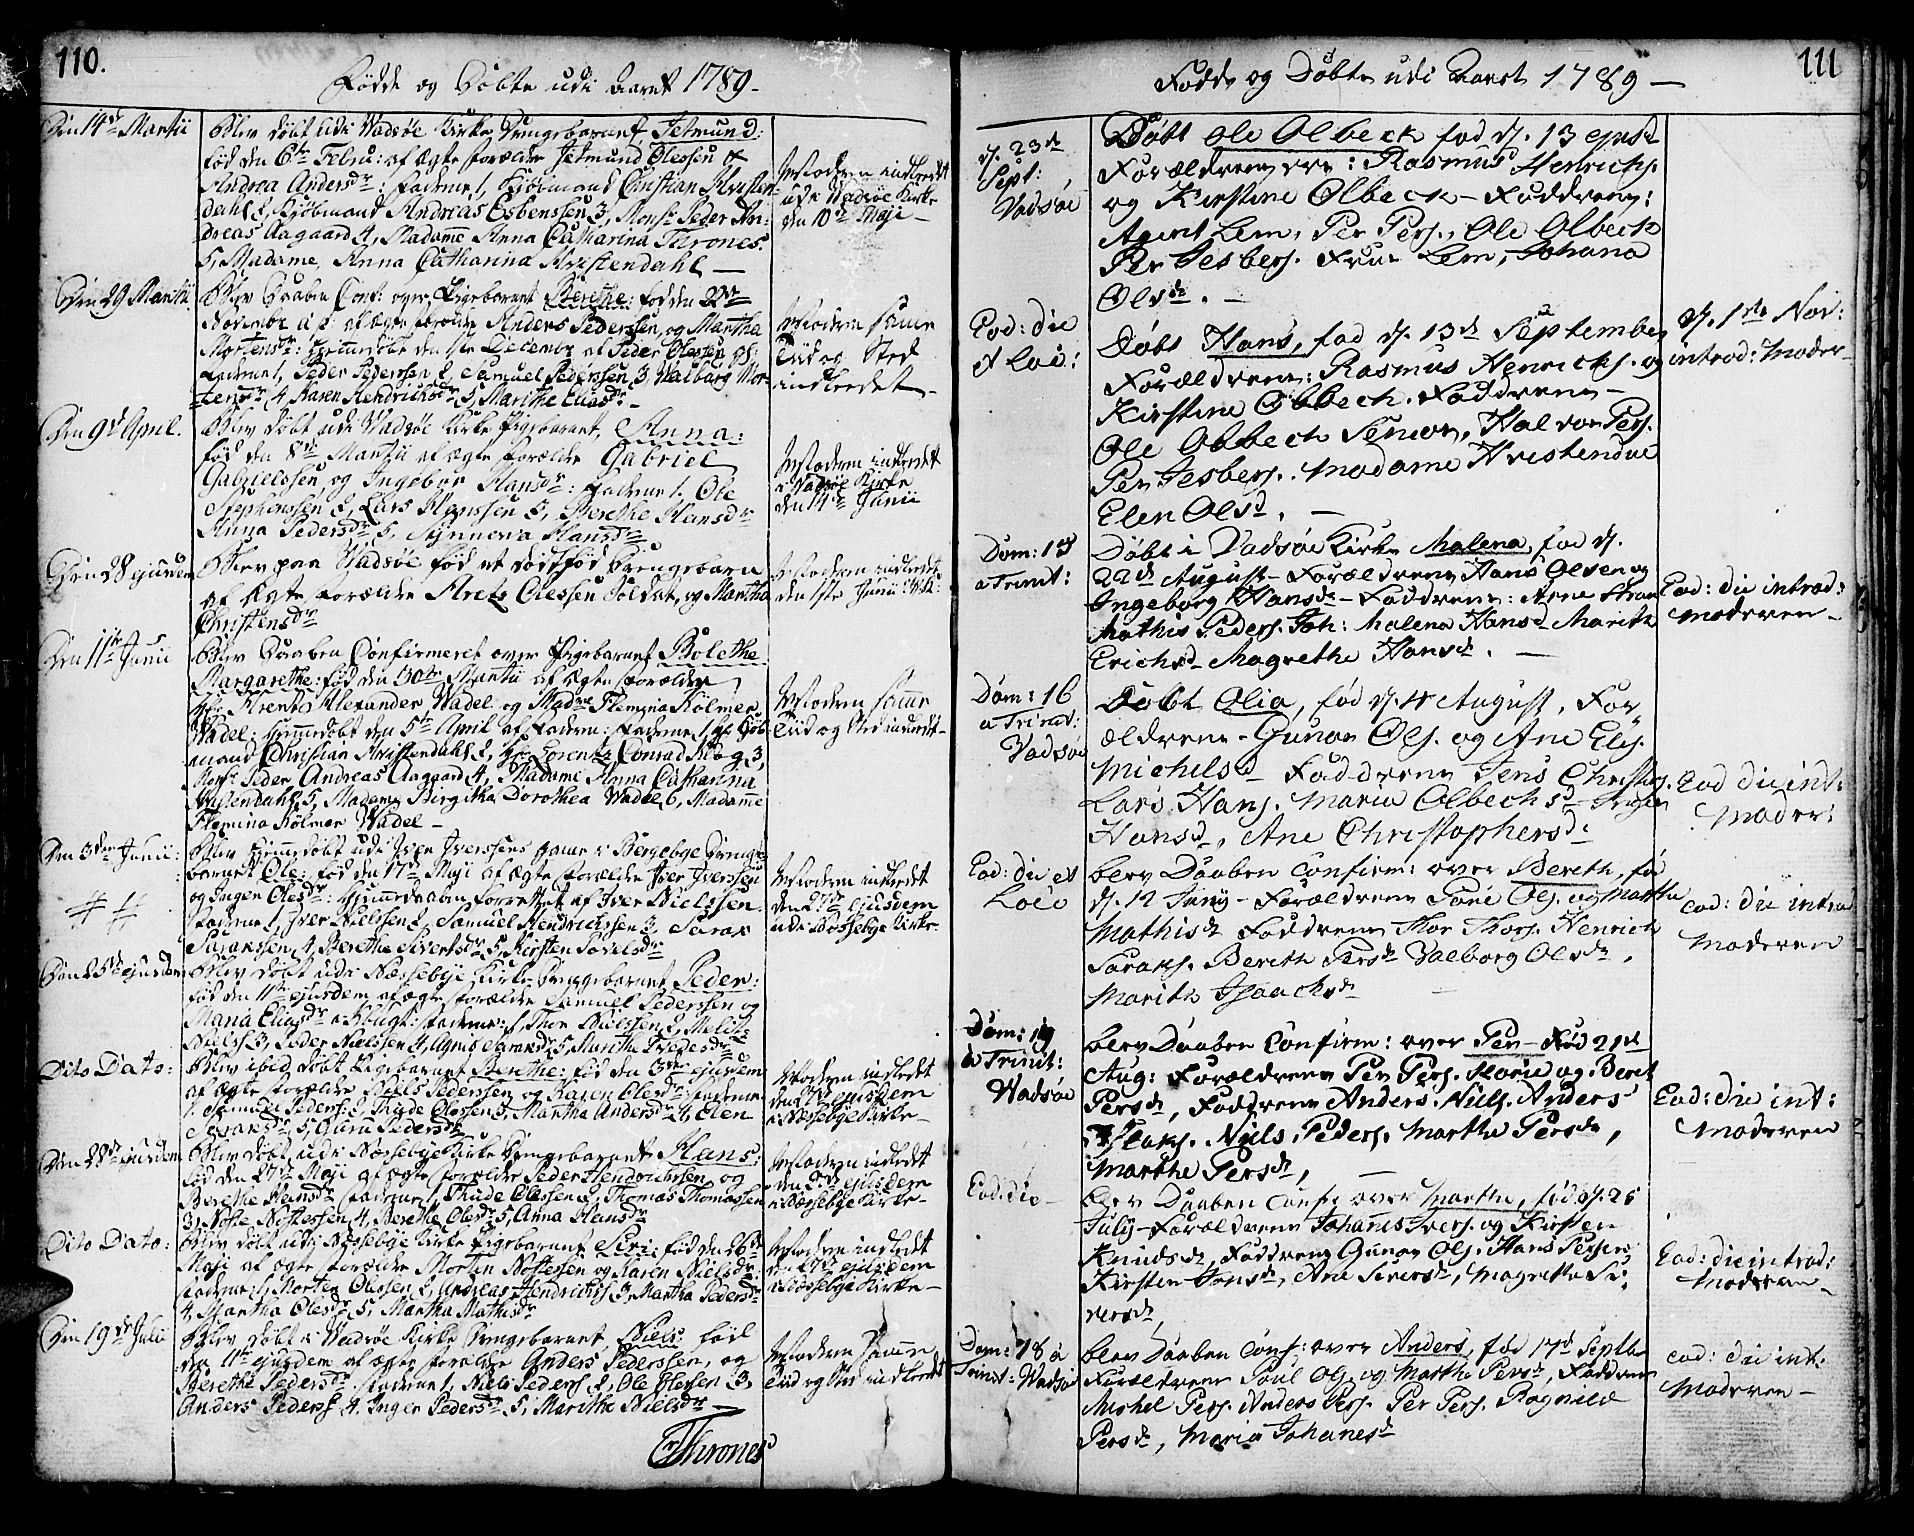 110.
Fødde og Døbte udi Aaret 1789-
Den 14de Martii
Blev døbt udi Wadsøe Kirke Drengebarnet Jetmund:
fød den 6te Febru: af Ægte forældre Jetmund Olessen og
Andrea Andersdr: faderne 1, Kjøbmand Christian Kristen-
dahl 2, Kjøbmand Andreas Esbenssen 3, Monsr Peder An-
dreas Aagaard 4, Madame Anna Catharina Thrones.
5, Madame, Anna Catharina Kristendahl —
Moderen indledet
udi Wadsøe Kirke
den 10de Maji —
Den 29 Martii
Blev Daaben Conf: over Pigebarnet Berethe: fød den 22de
Novembr a. p: af ægte forældre Anders Pederssen og Martha
Mortensdr: hjemmedøbt den 1ste Decembr af Peder Olessen
faderne 1, Peder Pederssen 2, Samuel Pederssen 3, Walborg Mor-
tensdr 4, Karen Hendrichsdr 5, Marithe Eliasdr —
Moderen samme
Tiid og Sted
indledet —
Den 9de April.
Blev døbt udi Wadsøe Kirke Pigebarnet, Anna:
fød den 8de Martii af ægte forældre Gabriel
Gabrielssen og Ingebor Hansdr: faderne 1. Ole
Stephenssen 2, Lars Hanssen 3, Berethe Hansdr
Anna Pedersdr 5, Synneva Hansdr
Moderen indledet
i Wadsøe Kirke
den 14de Junii
Den 28 ejusdem
Blev paa Wadsøe fød et dødfød Drengebarn
af Ægte forældre Arets Olessen Soldat, og Martha
Christensdr
Moderen indledet
den 1ste Junii
Den 11te Junii
Blev Daaben Confirmeret over Pigebarnet Bolethe
Margarethe: fød den 30te Martii af Ægte forældre
Hr Arents Alexander Wadel og Madme Flemina Kølmer
Wadel: hjemmedøbt den 5te April af faderen: faderne 1, Hr Kjøb-
mand Christian Kristendahl 2, Hr Lorentz Conrad 3,
Monsr Peder Andreas Aagaard 4, Madame Anna Catharina
Kristendahl 5, Madame Birgitha Dorothea Wadel 6, Madame
Flemina Kølmer Wadel —
Moderen samme
Tiid og Sted indledet —
Den 3die Junii:
Blev hjemmedøbt udi Iver Iverssens game i Bergebye Drenge
barnet Ole: fød den 17de Maji af ægte forældre Iver Iverssen
og Ingen Olesdr: hjemmedaaben forrettet af Iver Nielssen.
faderne 1, Iver Nielssen 2, Samuel Hendrichssen 3, Sarak
Sarakssen, 4, Berethe Sivertsdr 5, Kirsten Povelsdr
Moderen indledet
den 27de ejusdem
udi Næssebye Kirke —
Den 25de ejusdem
Blev døbt udi Næssebye Kirke Drengebarnet Peder:
fød den 11te ejusdem af ægte forældre Samuel Pederssen og
Maria Eliasdr: faderne: 1, Thor Nielssen 2,
Niels 3, Peder Nielssen 4, Agnis Saraksdr 5, Marithe
Dito Dato:
Blev ibid døbt Pigebarnet Berethe: fød den 3die ejusdem
af ægte forældre Niels Pederssen og Karen Olesdr: faderne
1, Samuel Peders: 2, Thude Olessen 3, Martha Andersdr 4, Elen
Saraksdr 5, Guru Pedersdr
Moderen indledet
den 27de ejusdem
i Næssebye Kirke —
Den 28de ejusdem
Blev døbt udi Næssebye Kirke Drengebarnet Hans:
fød den 27de Maji af ægte forældre Peder Hendrichssen og
Berethe Hansdr faderne 1, Thude Olessen 2, Thomas Thomassen
3, Nofte Noftessen 4, Berethe Olesdr 5, Anna Hansdr
Moderen indledet
den ejusdem
i Næssebye Kirke —
Dito Dato:
Blev døbt udi Næssebye Kirke Pigebarnet Siri fød den 26de
Maji af ægte forældre Morten Noftessen og Karen Nielsdr:
faderne: 1, Morten Olessen 2, Andreas Hendrichss 3, Martha Pedersdr
4, Martha Olesdr 5, Martha Mathisdr
Moderen indledet
den 27de ejusdem
i Næssebye Kirke —
Den 19de Julii
Blev døbt i Wadsøe Kirke Drengebarnet, Niels fød
den 11te ejusdem af ægte forældre Anders Pederssen, og
Berethe Pedersdr: faderne 1, Niels Peders 2, Ole Olessen 3,
Anders Peders 4, Inger Pedersdr 5, Marithe Nielsdr —
Moderen samme
Tiid og Sted indledet
Thrones
111
Fødde og Døbte udi Aaret 1789 —
d. 23de
Sept:
Vadsøe
Døbt Ole Olbeck fød d. 13 ejusd
Forældrene ere: Rasmus Henrichs.
og Kirstine Olbeck — Faddrene:
Agent Lem, Per Pers., Ole Olbeck
Per Jesbers. Frue Lem, Johana
Olsdr. —
Eod: die
et Loco:
Døbt Hans, fød d. 13de September
Forældrene: Rasmus Henrichs. og
Kirstine Olbech. Faddrene —
Ole Olbech Senior, Halvor Pers.
Per Jesbers. Madame Kristendal
Elen Olsd. —
d. 1ste Nov:
introd: Moder —
Dom: 15
a Trinit:
Døbt i Vadsøe Kirke Malena, fød d.
22de August — Forældrene Hans Olsen og
Ingeborg Hansdr — Faddrene: Arne
Mathis Peders. Joh: Malena Hansd Marith
Erichsd Magrethe Hansd. —
Eod: die introd:
moderen —
Dom: 16
a Trinit:
Vadsøe
Døbt Olia, fød d. 4 August, For-
ældrene — Gunar Ols. og Ane Els.
Michelsd — Faddrene Jens Christis.
Lars Hans. Maria Olbechsd —
Hansd, Ane Christophersd.
Eod die int:
Moder:
Eod: die et
Loco
blev Daaben Confirm: over Bereth, fød
d. 12 Junij — Forældrene Povi Ols. og Marthe
Mathisd Faddrene Thor Thors. Henrich
Saraks. Bereth Persd Valborg Olsdr,
Marith Isaachsd —
eod: die introd
Moderen
Dom: 19
a Trinit:
Wadsøe
blev Daaben Confirm: over Per — Fød 21de
Aug: Forældrene Per Pers. og Beret
Persd, Faddrene Anders Niels. Anders
Niels Peders. Marthe Persdr,
Marthe Persdr, —
Eod: die int:
Moderen
Eod: die —
blev Daaben Conf: over Marthe, fød d. 25
July — Forældrene Johanes Ivers. og Kirsten
Knudsd, Faddrene Gunar Ols. Hans Persen
Kirsten Jonsd, Ane Siversd, Magrethe Si-
versd,
Eod: die introd:
Moderen —
Dom: 18 a
Trinit: Vadsøe
blev Daaben Conf: over Anders, fød 17de Septbr
Forældrene Poul Ols. og Marthe Persd, Faddrene
Michel Pers. Anders Pers. Per Pers. Ragnild
Persd, Maria Johanesd
eod: die int:
Moderen —